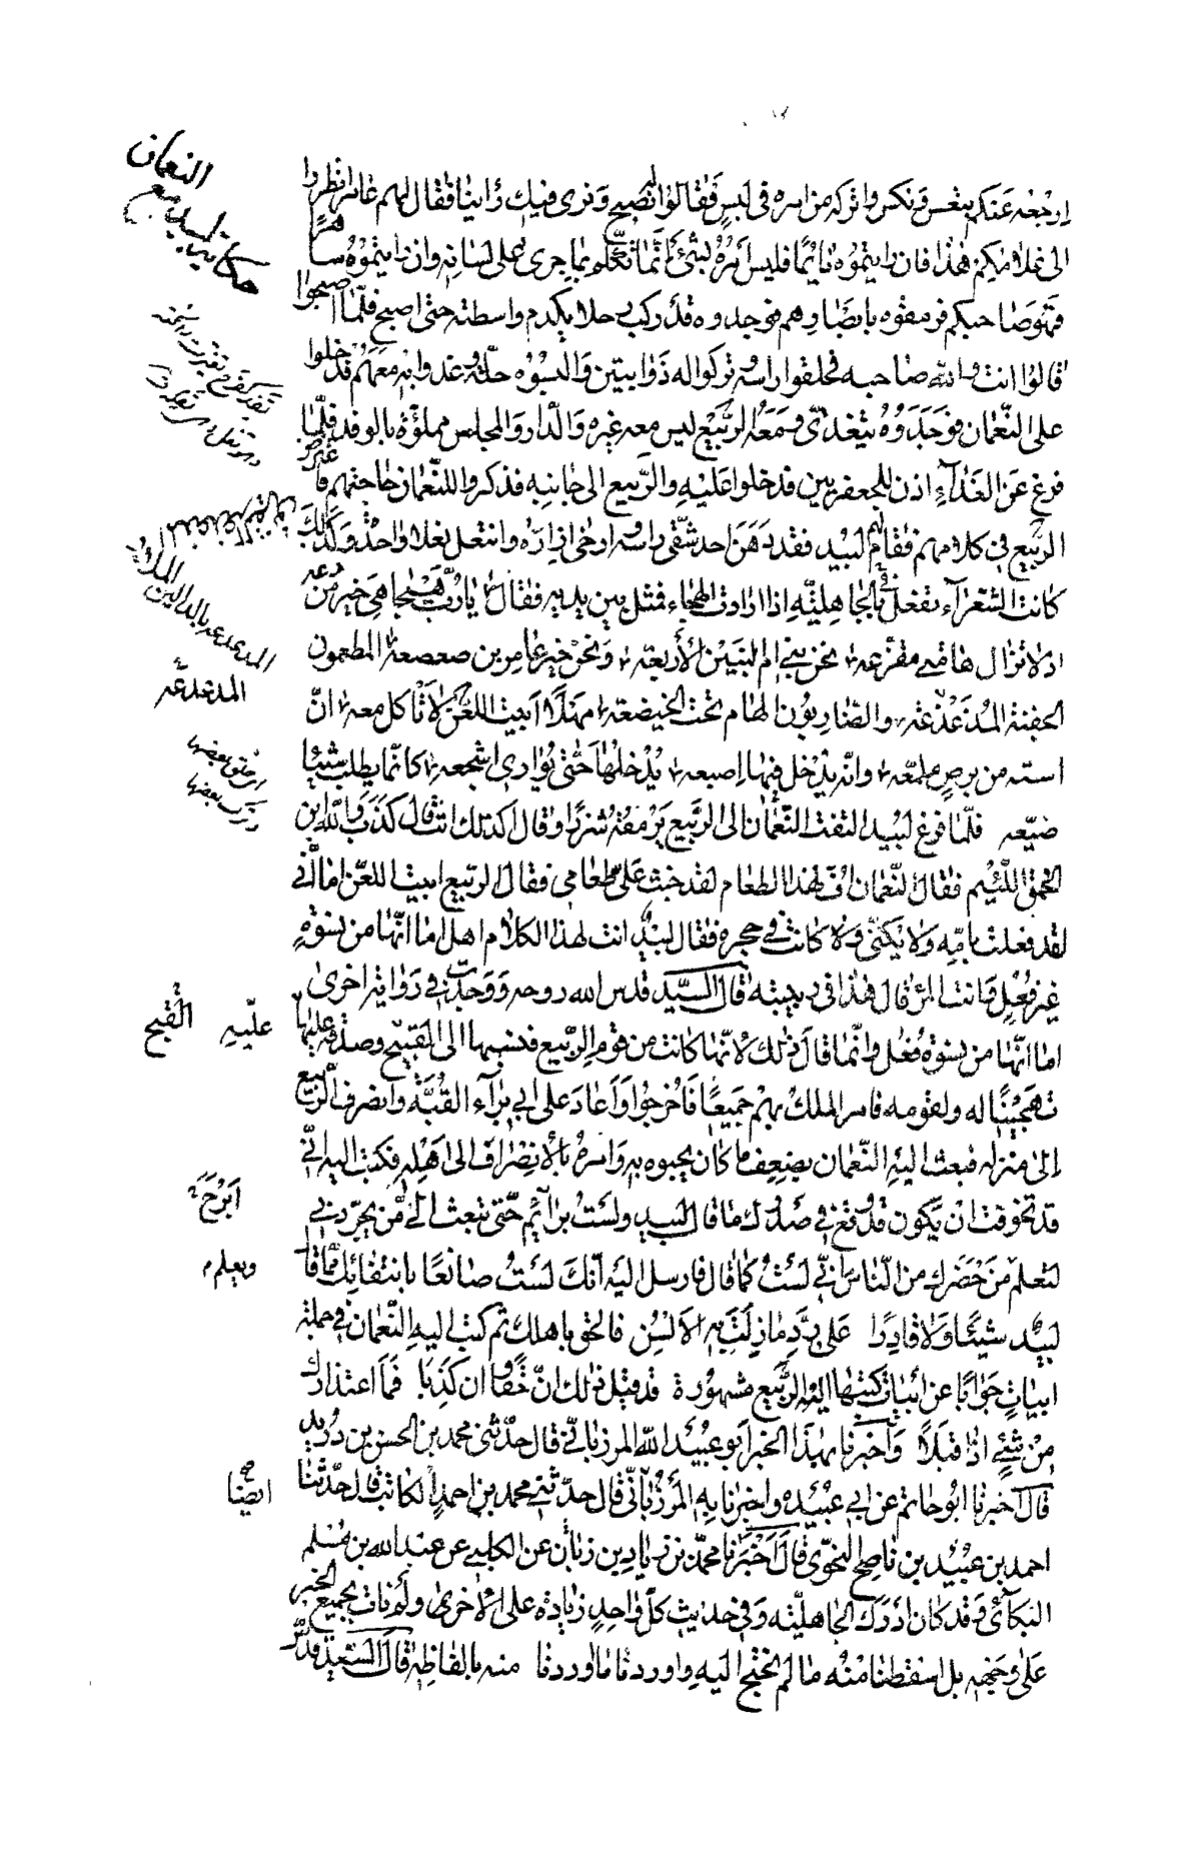 ارجعه عنكم بتعس ونكس واتركه من امره في لبس فقالوا نصبح ونرى فيك راينا فقال لهم عامر انظروا
الى غلامكم هذا فان رايتموه نايما فليس امره بشئ انما تكلم بما جرى على لسانه وان رايتموه ساهرا
فهو صاحبكم فرمقوه بابصارهم فوجدوه قد ركب رحلا يكدم واسطته حتى اصبح فلما اصبحوا
قالوا انت والله صاحبه فحلقوا راسه وتركوا له ذوابتين والبسوه حلة وغدوا به معهم فدخلوا
على النعمان فوجدوه يتغدى ومعه الربيع ليس معه غيره والدار والمجلس مملؤة بالوفد فلما
فرغ عن الغداء اذن للجعفريين فدخلوا عليه والربيع الى جانبه فذكروا للنعمان حاجتهم فاعترض
الربيع في كلامهم فقام لبيد فقد دهن احد شقى راسه وارخى ازاره وانتعل نعلا واحدة وكذلك
كانت الشعراء تفعل في الجاهلية اذا ارادت الهجاء فمثل بين يديه فقال يا رب هيجا هي خير من دعه
اذ لا تزال هامتى مقزعه نحن بنى ام البنين الأربعة ونحن خير عامر بن صعصعة المطعمون
الجفنة المدعدعة والضاربون الهام تحت الخيضعه مهلا ابيت اللعن لا تاكل معه ان
استه من برص ملمعه وانه يدخل فيها اصبعه يدخلها حتى يوارى اشجعه كانما يطلب شيئا
ضيعه فلما فرغ لبيد التفت النعمان الى الربيع يرمقه شزرا وقال اكذلك انت قال كذب والله ابن
الحمق اللئيم فقال النعمان اف لهذا الطعام لقد خبث على طعامى فقال الربيع ابيت اللعن اما انى
لقد فعلت بامه ولا يكنى ولا كانت في حجره فقال لبيد انت لهذا الكلام اهل اما انها من نسوة
غير فعل وانت المرء قال هذا في ربيبته قال السيد قدس الله روحه ووجدت في رواية اخرى
اما انها من نسوة فعل وانما قال ذلك لانها كانت من قوم الربيع فنسبها الى القبيح وصدقه عليها
تهجينا له ولقومه فامر الملك بهم جميعا فاخرجوا واعاد على ابى براء القبة وانصرف الربيع
الى منزله فبعث اليه النعمان بضعف ما كان يحبوه به وامره بالانصراف الى اهله فكتب اليه انى
قد تخوفت ان يكون قد وقع في صدرك ما قال لبيد ولست برائم حتى تبعث الى من يجردنى
لتعلم من حضرك من الناس انى لست كما قال فارسل اليه انك لست صانعا بانتفائك مما قال
لبيد شيئا ولا قادرا على رد ما زلت به الالسن فالحق باهلك ثم كتب اليه النعمان في جملة
ابيات جوابا عن ابيات كتبها اليه الربيع مشهورة قد قيل ذلك ان حقا وان كذبا فما اعتذارك
من شئ اذا قيلا واخبرنا بهذا الخبر ابو عبيد الله المرزبانى قال حدثنى محمد بن الحسن بن دريد
قال اخبرنا ابو حاتم عن ابى عبيده واخبرنا به المرزبانى قال حدثنى محمد بن احمد الكاتب قال حدثنا
احمد بن عبيد بن ناصح النحوى قال اخبرنا محمد بن زياد بن زبان عن الكلبى عن عبد الله بن مسلم
البكائى وقد كان ادرك الجاهلية وفي حديث كل واحد زيادة على الاخرى ولم نات بجميع الخبر
على وجهه بل اسقطنا منه ما لم نحتج اليه واوردنا ما اوردنا منه بالفاظه قال السيد قدس
النعمان
حكاية لبيد مع
المدعدعة بالدالين
المدعدعه
عليه القبيح
ابرح
ويعلم
ايضا